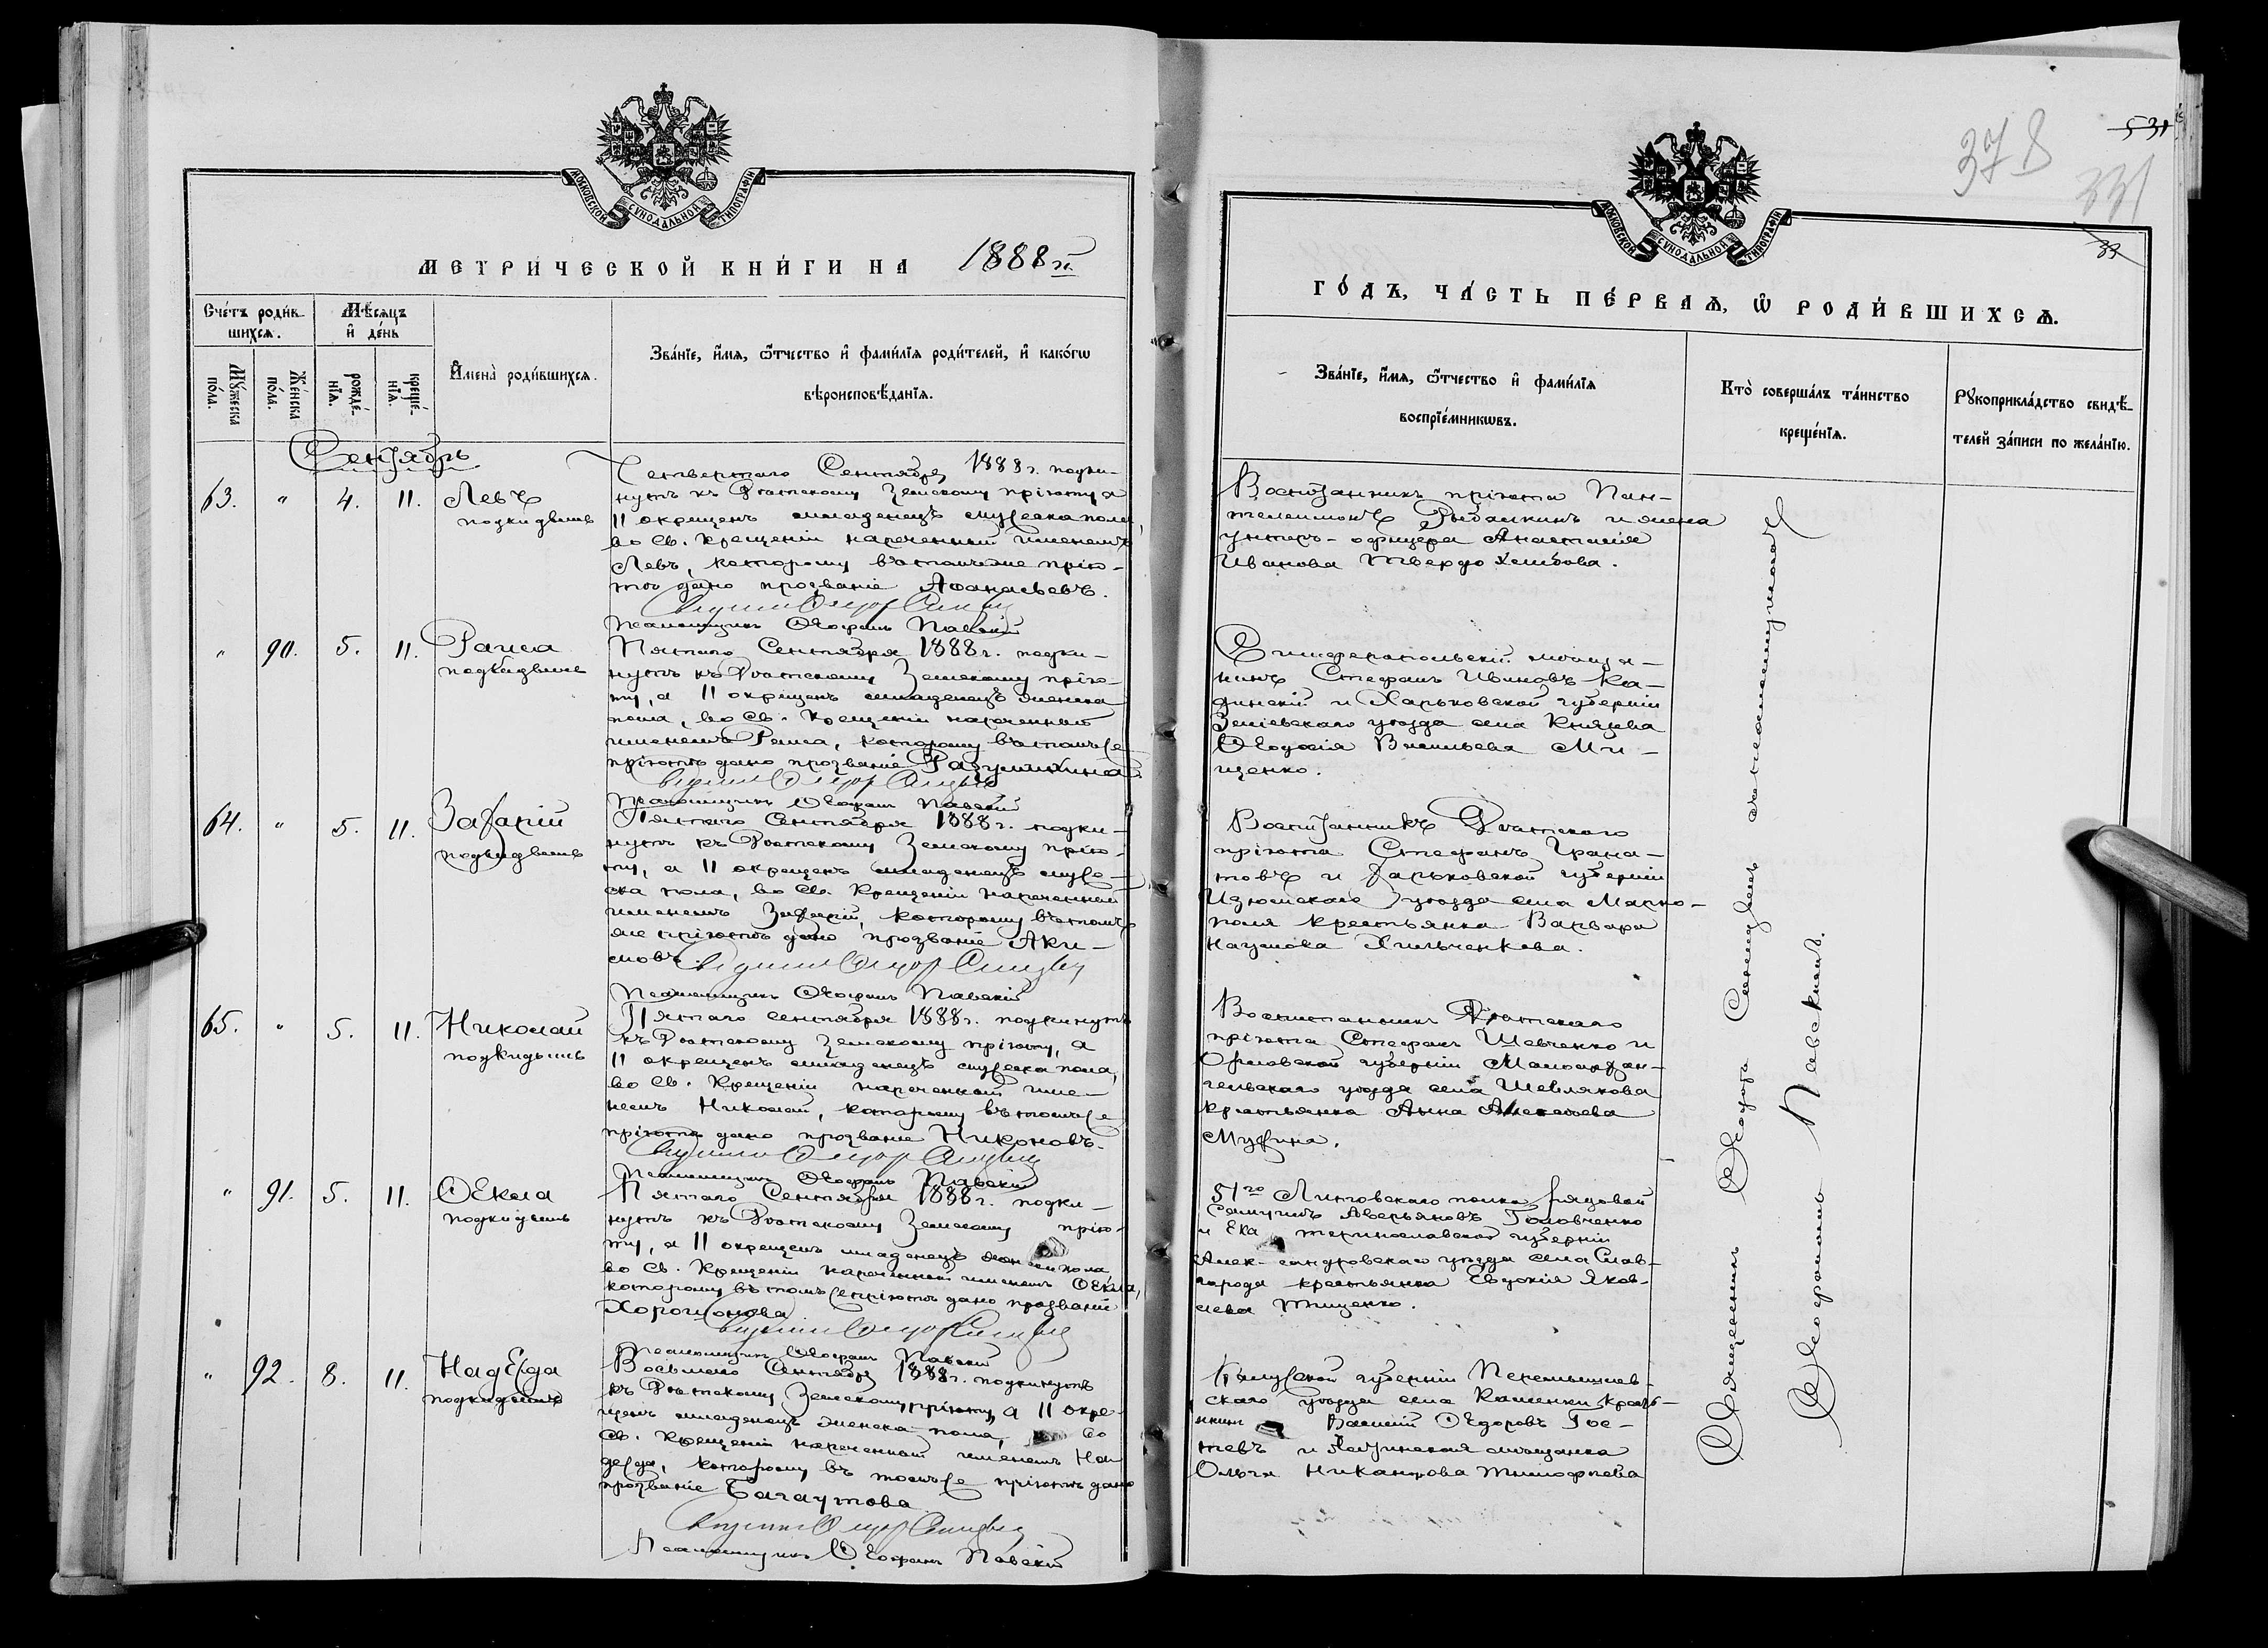 МОСКОВСКОЙ СѴНОДАЛЬНОЙ ТИПОГРАФІИ
МЕТРИЧЕСКОЙ КНИ́ГИ НА 1888 г.
Сче́тъ роди́в-
шихсѧ.
Мѣ́сѧцъ
и҆ де́нь
Мꙋ́жеска
по́ла.
Же́нска
по́ла.
рожде́-
нїѧ.
креще́-
нїѧ.
И҆мена̀ роди́вшихсѧ.
Зва́нїе, и҆́мѧ, ѻ҆́тчество и҆ фами́лїѧ роди́телей, и҆ како́гѡ
вѣроисповѣ́данїѧ.
Сентябрь
63. " 4. 11. Левъ
подкидышъ
Четвертаго Сентября 1888 г. подки-
нутъ къ Земскому пріюту а
11 окрещенъ младенецъ мужеска пола,
во Св. Крещеніи нареченный именемъ
Левъ, которому въ томъ же прію-
тѣ дано прозваніе Аѳанасьевъ.
Псаломщикъ Ѳеофанъ Павскій
" 90. 5. 11. Раиса
подкидышъ
Пятаго Сентября 1888 г. подки-
нутъ къ Земскому прію-
ту, а 11 окрещенъ младенецъ женска
пола, во Св. Крещеніи нареченный
именемъ Раиса, которому въ томъ же
пріютѣ дано прозваніе Разумихина.
Псаломщикъ Ѳеофанъ Павскій
64. " 5. 11. Захарій
подкидышъ
Пятаго Сентября 1888 г. подки-
нутъ къ Земскому прію-
ту, а 11 окрещенъ младенецъ муже-
ска пола, во Св. Крещеніи нареченный
именемъ Захарій, которому въ томъ
же пріютѣ дано прозваніе Аки-
мовъ.
Псаломщикъ Ѳеофанъ Павскій
65. " 5. 11. Николай
подкидышъ
Пятаго Сентября 1888 г. подкинутъ
къ Земскому пріюту, а
11 окрещенъ младенецъ мужеска пола,
во Св. Крещеніи нареченный име-
немъ Николай, которому въ томъ же
пріютѣ дано прозваніе Никоновъ.
Псаломщикъ Ѳеофанъ Павскій
" 91. 5. 11. Ѳекла
подкидышъ
Пятаго Сентября 1888 г. подки-
нутъ къ Земскому прію-
ту, а 11 окрещенъ младенецъ женска пола
во Св. Крещеніи нареченный именемъ Ѳекла,
которому въ томъ же пріютѣ дано прозваніе
Псаломщикъ Ѳеофанъ Павскій
" 92. 8. 11. Надежда
подкидышъ
Восьмаго Сентября 1888 г. подкинутъ
къ Земскому пріюту, а 11 окре-
щенъ младенецъ женска пола, во
Св. Крещеніи нареченный именемъ На-
дежда, которому въ томъ же пріютѣ дано
прозваніе Багаутова
Псаломщикъ Ѳеофанъ Павскій
378
531
331
33
МОСКОВСКОЙ СѴНОДАЛЬНОЙ ТИПОГРАФІИ
ГО́ДЪ, ЧА́СТЬ ПЕ́РВАѦ, Ѡ҆ РОДИ́ВШИХСѦ.
Зва́нїе, и҆́мѧ, ѻ҆́тчество и҆ фами́лїѧ
воспрїе́мникѡвъ.
Кто̀ соверша́лъ та́инство
креще́нїѧ.
Рꙋкоприкла́дство свидѣ́-
телей за́писи по жела́нїю.
Воспитанникъ пріюта Пан-
телеимонъ Рыбалкинъ и жена
унтеръ-офицера Анастасія
Иванова Твердохлебова.
Симферопольскій мѣща-
нинъ Стефанъ Ивановъ Ка-
динскій и Харьковской губерніи
Зміевскаго уѣзда села Князева
Ѳеодосія Васильева Ми-
щенко.
Воспитанникъ
пріюта Стефанъ Грана-
товъ и Харьковской губерніи
Изюмскаго уѣзда села Марко-
поля крестьянка Варвара
Наумова Хильченкова.
Воспитанникъ
пріюта Стефанъ Шевченко и
Орловской губерніи Малоархан-
гельскаго уѣзда села Шевлякова
крестьянка Анна Алексѣева
Мухина.
51го Литовскаго полка рядовой
Самуилъ Аверьяновъ Головченко
и Екатеринославской губерніи
Александровскаго уѣзда села Слав-
города крестьянка Евдокія Яков-
лева Тищенко.
Калужской губерніи Перемышлев-
скаго уѣзда села Каменки кресть-
янинъ Василій Ѳедоровъ Гос-
тевъ и мѣщанка
Ольга Никанорова Тимофеева
Священникъ Ѳеодоръ съ псаломщикомъ
Ѳеофаномъ Павскимъ.